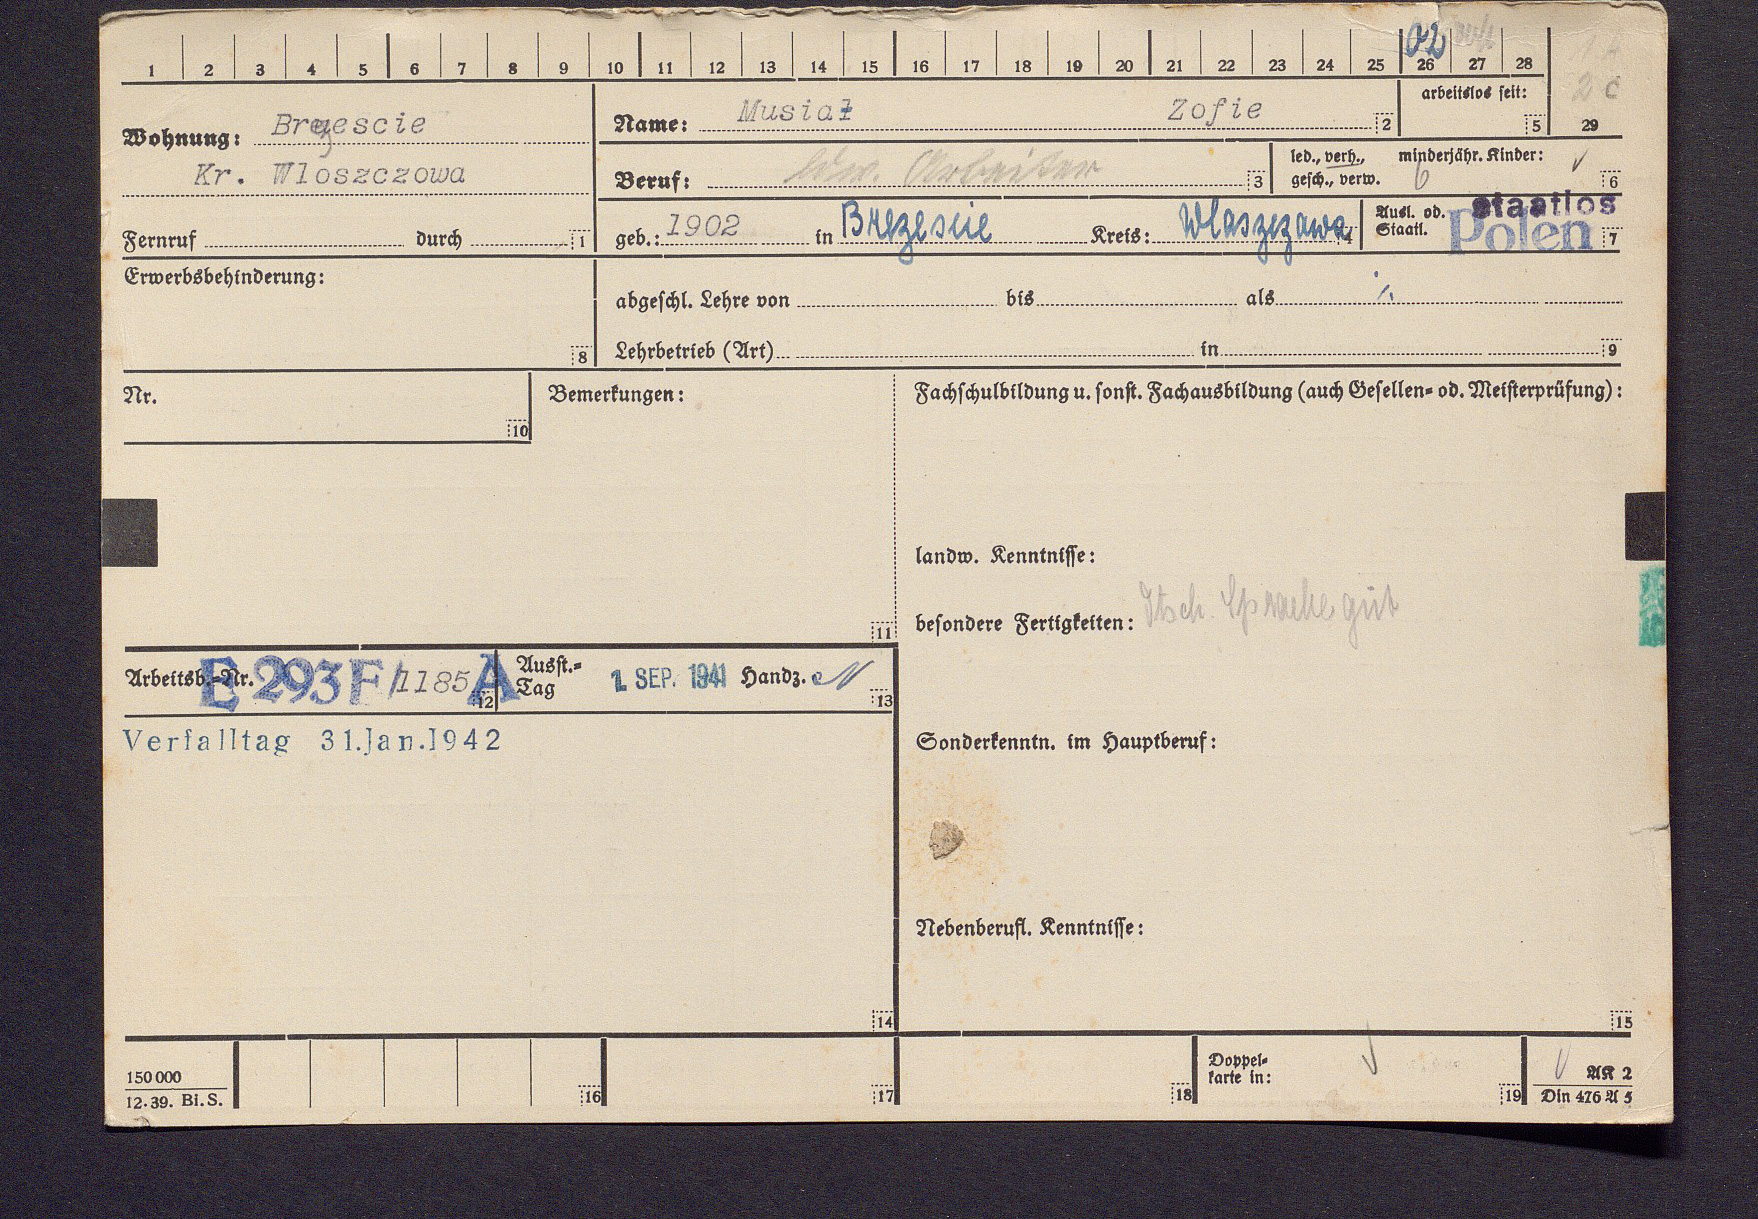 1 2 3 4 5 6 7 8 9 10 11 12 13 14 15 16 17 18 19 20 21 22 23 24 25 26 27 28
02
2 c
29
Wohnung: Brzescie
Kr. Wloszczowa
Fernruf durch 1
Name: Musiał Zofie 2
arbeitslos seit: 5
Beruf: ldw. Arbeiter 3
led., verh., gesch., verw.
minderjähr. Kinder: 6
6
geb.: 1902 in Brzezscie Kreis: Wlaszczawa 4
Ausl. od. Staatl. staatlos Polen 7
Erwerbsbehinderung: 8
abgeschl. Lehre von bis als
Lehrbetrieb (Art) in 9
Nr. 10
Bemerkungen: 11
Fachschulbildung u. sonst. Fachausbildung (auch Gesellen- od. Meisterprüfung):
landw. Kenntnisse:
besondere Fertigkeiten: dtsch. Sprache gut
Arbeitsb.-Nr. E 293 F/1185 A 12
Ausst.-Tag 1. SEP. 1941 Handz. 13
Verfalltag 31.Jan.1942
Sonderkenntn. im Hauptberuf:
Nebenberufl. Kenntnisse:
14
15
150 000
12.39. Bi.S.
16
17
18
Doppelkarte in: 19
AK 2
Din 476 A 5